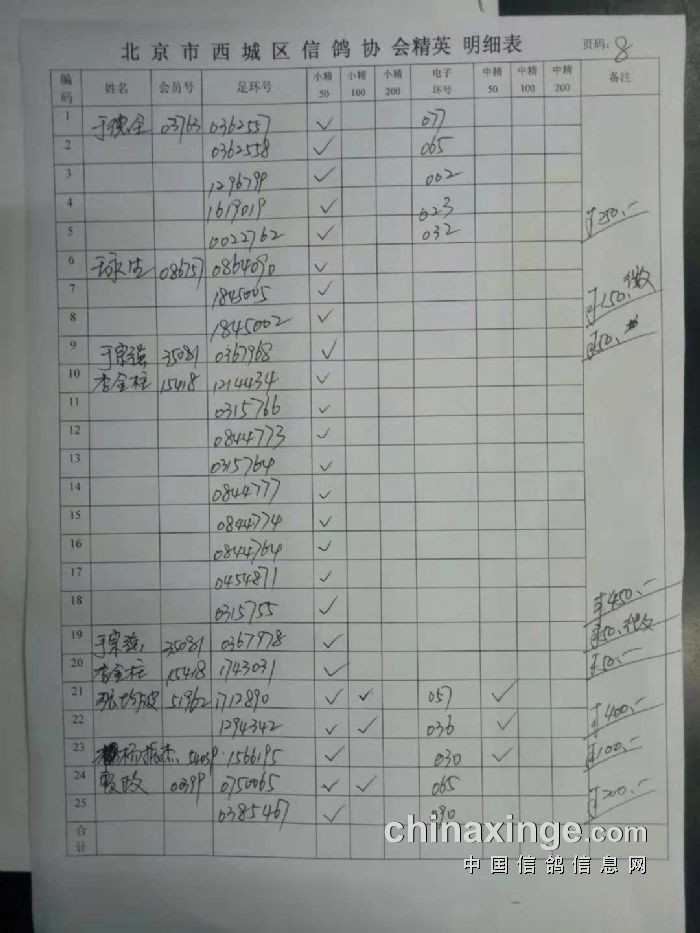 北京市西城区信鸽协会精英 明细表 页码: 8
编码 姓名 会员号 足环号 小精50 小精100 小精200 电子环号 中精50 中精100 中精200 备注
1 于德全 03763 0362557 ✓ 077
2 0362558 ✓ 065
3 1296799 ✓ 002
4 1619019 ✓ 023
5 0022762 ✓ 032 ¥250.-
6 08757 0864090 ✓
7 1845005 ✓
8 1845002 ✓ ¥150.
9 于宗强 35081 0367968 ✓ ¥50.
10 李金柱 15418 1214434 ✓
11 0315766 ✓
12 0844773 ✓
13 0315764 ✓
14 0844777 ✓
15 0844774 ✓
16 0844764 ✓
17 0454871 ✓
18 0315755 ✓ ¥450.-
19 于宗强 35081 0367978 ✓ ¥50.
20 李金柱 15418 1743031 ✓ ¥50.-
21 51962 1712890 ✓ ✓ 057 ✓
22 1294342 ✓ ✓ 036 ✓ ¥400.-
23 杨振杰 1566195 ✓ 030 ✓ ¥100.-
24 0399 0750065 ✓ ✓ 065
25 0385467 ✓ 090 ¥200.-
合计
chinaxinge.com
中国信鸽信息网